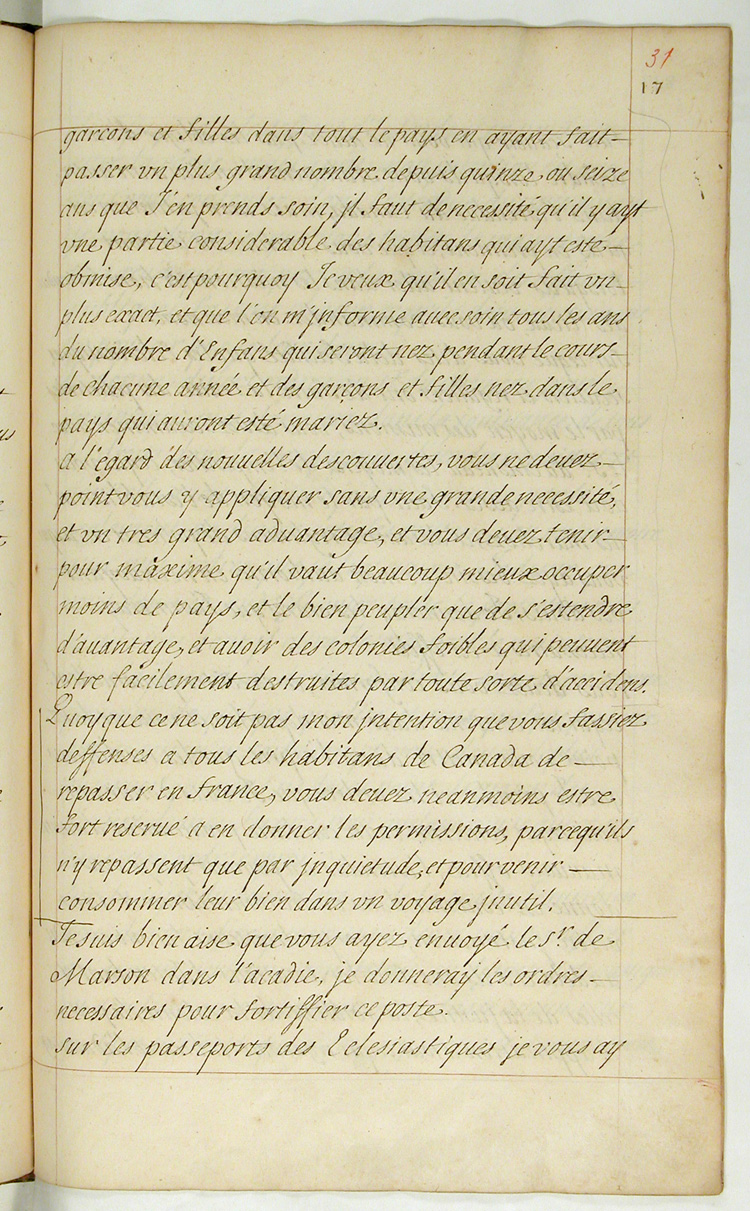 31
17
garcons et filles dans tout le pays en ayant fait
passer vn plus grand nombre depuis quinze ou seize
ans que J'en prends soin, jl faut de necessité qu'il y ayt
vne partie considerable des habitans qui ayt esté
obmise, c'est pourquoy Je veux qu'il en soit fait vn
plus exact, et que l'on m'jnforme auec soin tous les ans
du nombre d'Enfans qui seront nez pendant le cours
de chacune année et des garçons et filles nez dans le
pays qui auront esté mariez.
a l'egard des nouuelles descouuertes, vous ne deuez
point vous y appliquer sans vne grande necessité,
et vn tres grand aduantage, et vous deuez tenir
pour maxime qu'il vaut beaucoup mieux occuper
moins de pays, et le bien peupler que de s'estendre
d'auantage, et auoir des colonies foibles qui peuuent
estre facilement destruites par toute sorte d'accidens.
Quoyque ce ne soit pas mon jntention que vous fassiez
deffenses a tous les habitans de Canada de
repasser en france, vous deuez neanmoins estre
fort reserué a en donner les permissions, parcequ'ils
n'y repassent que par jnquietude, et pour venir
consommer leur bien dans vn voyage jnutil.
Je suis bien aise que vous ayez enuoyé le Sr. de
Marson dans l'acadie, je donneray les ordres
necessaires pour fortiffier ce poste.
sur les passeports des Eclesiastiques je vous ay